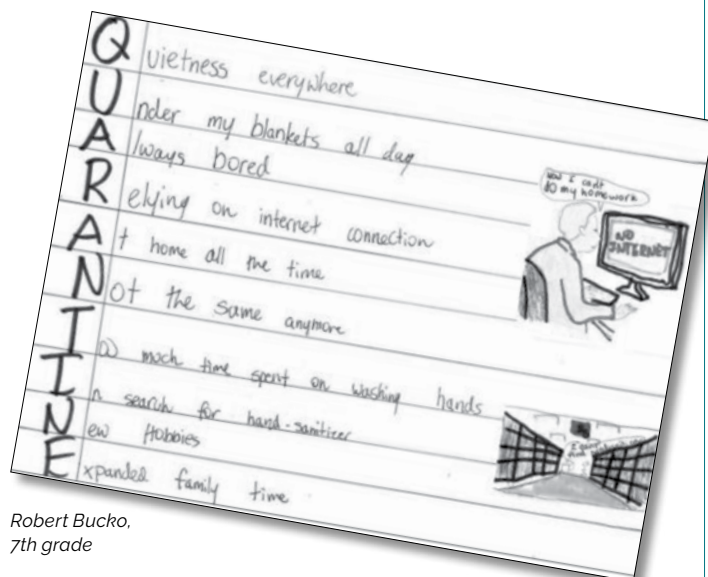 Quietness everywhere
Under my blankets all day
Always bored
Relying on internet connection
At home all the time
Not the same anymore
Too much time spent on washing hands
In search for hand-sanitizer
New Hobbies
Expanded family time
now I can't
do my homework
NO
INTERNET
Robert Bucko,
7th grade